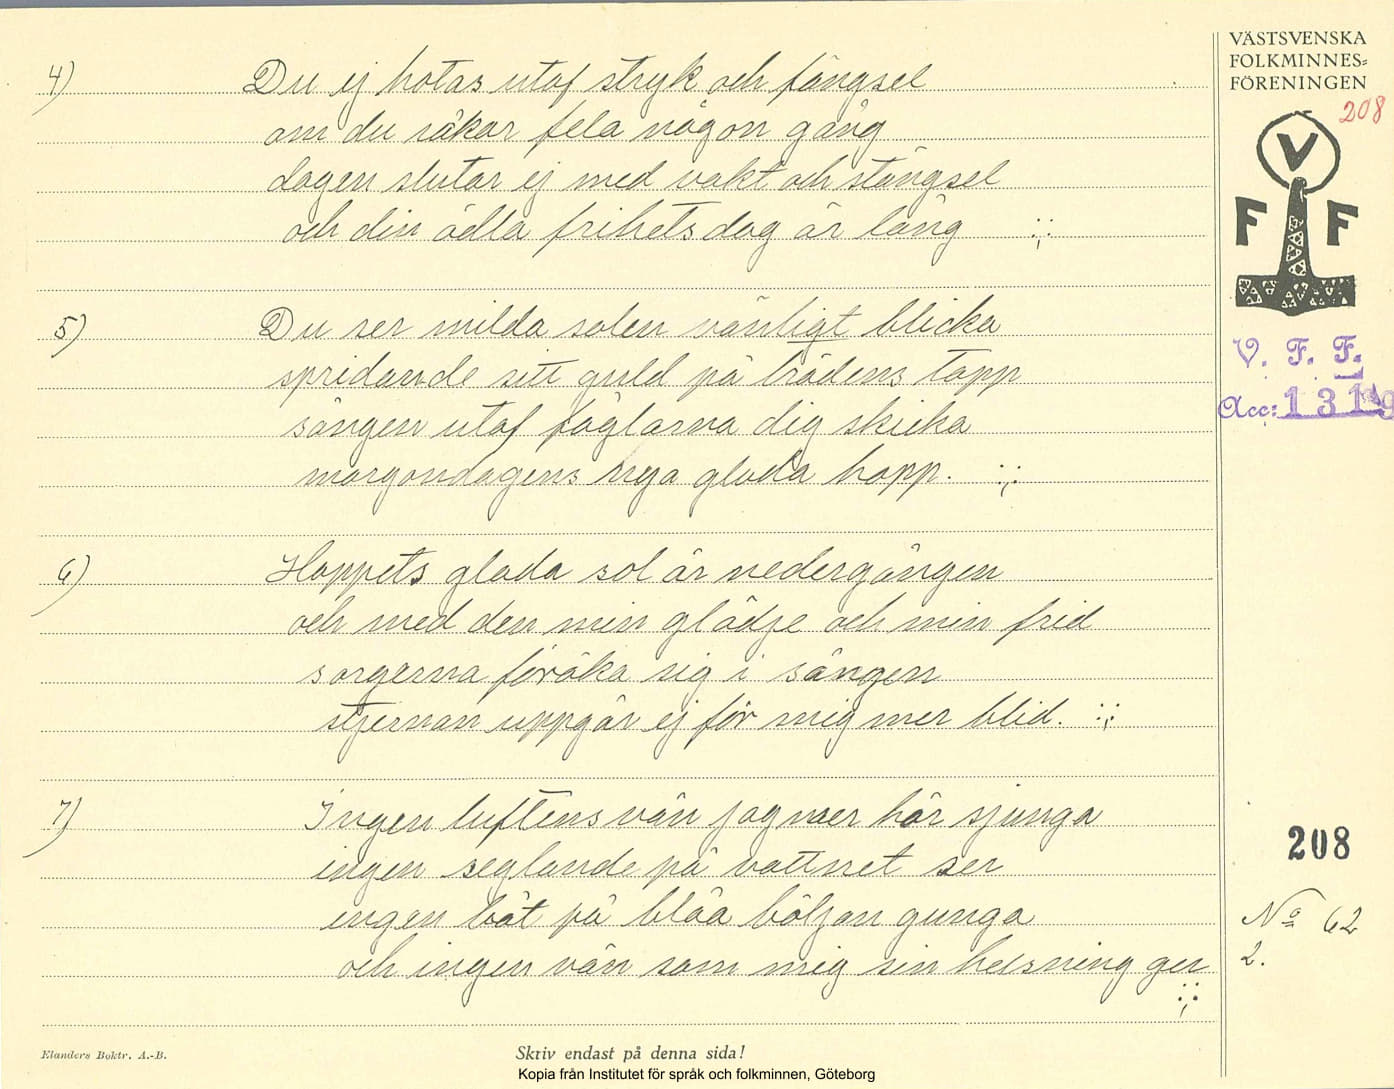 VÄSTSVENSKA
FOLKMINNES-
FÖRENINGEN
208
V
F F
V. F. F.
Acc: 131
4) Du ej hotas utaf stryk och fängsel
om du råkar fela någon gång
dagen slutar ej med vakt och stängsel
och din ädla frihets dag är lång :;:
5) Du ser milda solen vänligt blicka
spridande sitt guld på trädens topp
sången utaf fåglarna dig skicka
morgondagens nya glada hopp. :;:
6) Hoppets glada sol är nedergången
och med den min glädje och min frid
sorgerna föröka sig i sången
stjernan uppgår ej för mig mer blid. :;:
7) Ingen luftens vän jag mer hör sjunga
ingen seglande på vattnet ser
ingen båt på blåa böljan gunga
och ingen vän som mig sin helsning ger
:;:
208
No 62
2.
Elanders Boktr. A.-B.
Skriv endast på denna sida!
Kopia från Institutet för språk och folkminnen, Göteborg